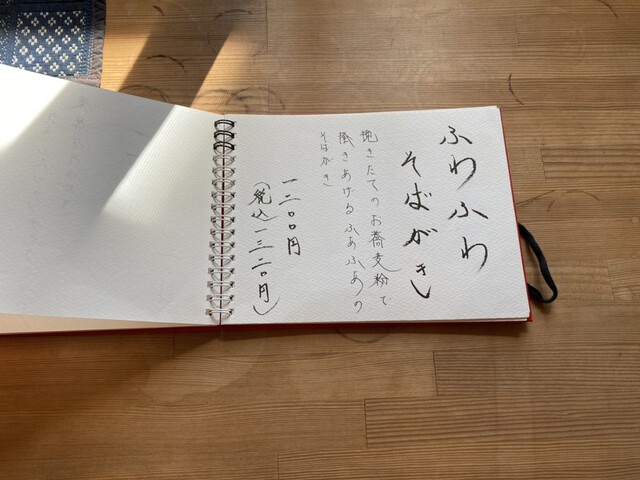 ふわふわ
そばがき
挽きたてのお蕎麦粉で
掻きあげるふあふあの
そばがき
一二〇〇円
(税込一三二〇円)